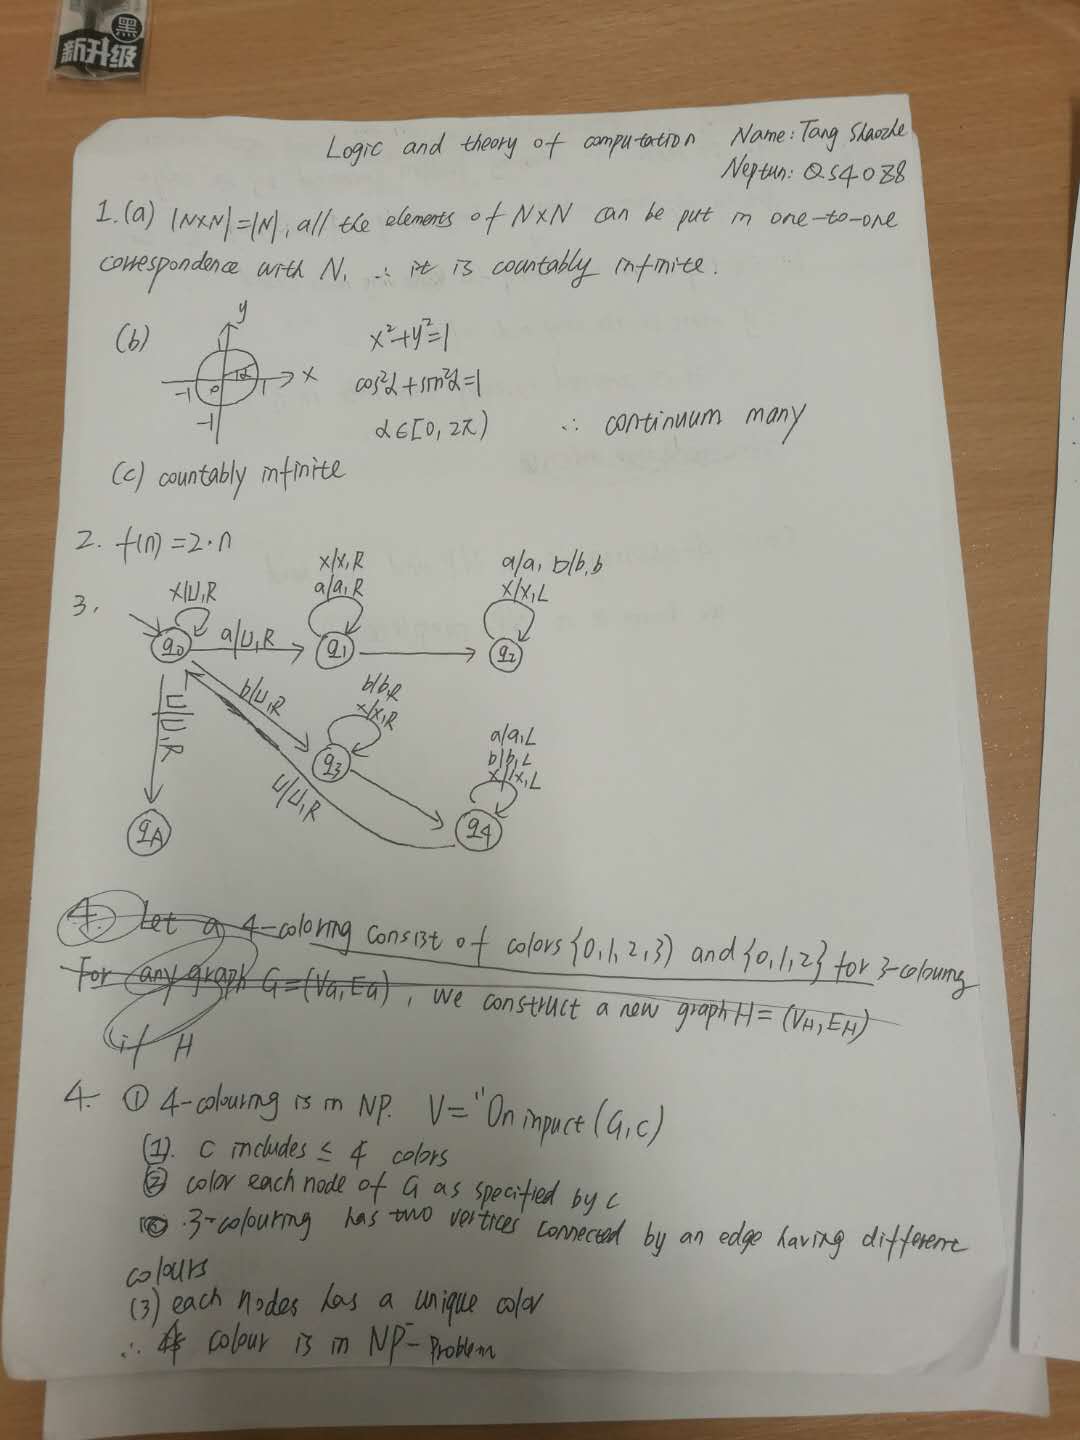 黑
新升级
Logic and theory of computation Name: Tang Shaozhe
Neptun: QS4OZ8
1. (a) |N×N|=|N|, all the elements of N×N can be put in one-to-one
correspondence with N, ∴ it is countably infinite.
(b) y x²+y²=1
1 α
-1 0 1 x cos²α+sin²α=1
-1 α∈[0, 2π) ∴ continuum many
(c) countably infinite
2. f(n)=2·n
3.
x/⊔,R
x/x,R
a/a,R
a/a, b/b,b
x/x,L
q0 a/⊔,R q1 q2
b/⊔,R
b/b,R
x/x,R
⊔/⊔,R
q3
a/a,L
b/b,L
x/x,L
⊔/⊔,R
qA q4
4. Let a 4-coloring consist of colors {0,1,2,3) and {0,1,2} for 3-colouring
For any graph G=(VG,EG), we construct a new graph H=(VH,EH)
if H
4. ① 4-colouring is in NP. V="On inpuct (G,c)
(1). c includes ≤ 4 colors
② color each node of G as specified by c
3-colouring has two vertices connected by an edge having different
colours
(3) each nodes has a unique color
∴ colour is in NP-Problem